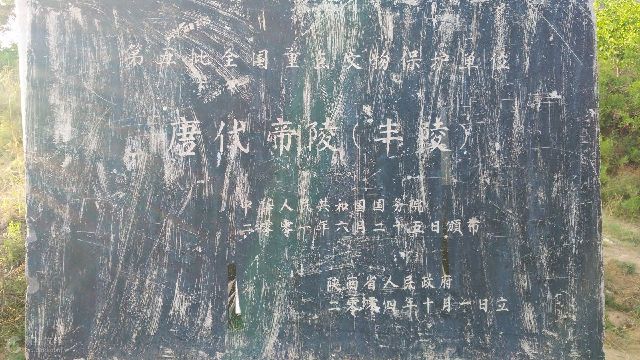 第五批全国重点文物保护单位
唐代帝陵（丰陵）
中华人民共和国国务院
二零零一年六月二十五日颁布
陕西省人民政府
二零零四年十月一日立